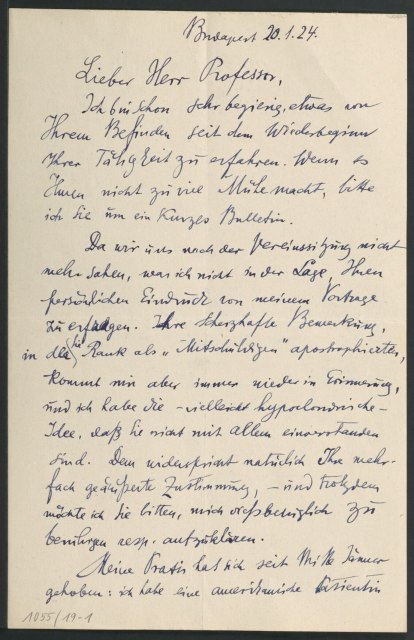 Budapest 20.1.24.
Lieber Herr Professor,
Ich bin schon sehr begierig, etwas von
Ihrem Befinden seit dem Wiederbeginn
Ihrer Tätigkeit zu erfahren. Wenn es
Ihnen nicht zu viel Mühe macht, bitte
ich Sie um ein kurzes Bulletin.
Da wir uns nach der Vereinssitzung nicht
mehr sahen, war ich nicht in der Lage, Ihren
persönlichen Eindruck von meinem Vortrage
zu erfragen. Ihre scherzhafte Bemerkung,
in der Sie Rank als „Mitschuldigen" apostrophierten,
kommt mir aber immer wieder in Erinnerung,
und ich habe die – vielleicht hypochondrische –
Idee, daß Sie nicht mit allem einverstanden
sind. Dem widerspricht natürlich Ihre mehr-
fach geäußerte Zustimmung, – und trotzdem
möchte ich Sie bitten, mich diesbezüglich zu
beruhigen resp. aufzuklären.
Meine Praxis hat sich seit Mitte Jänner
gehoben: ich habe eine amerikanische Patientin
1055/19-1